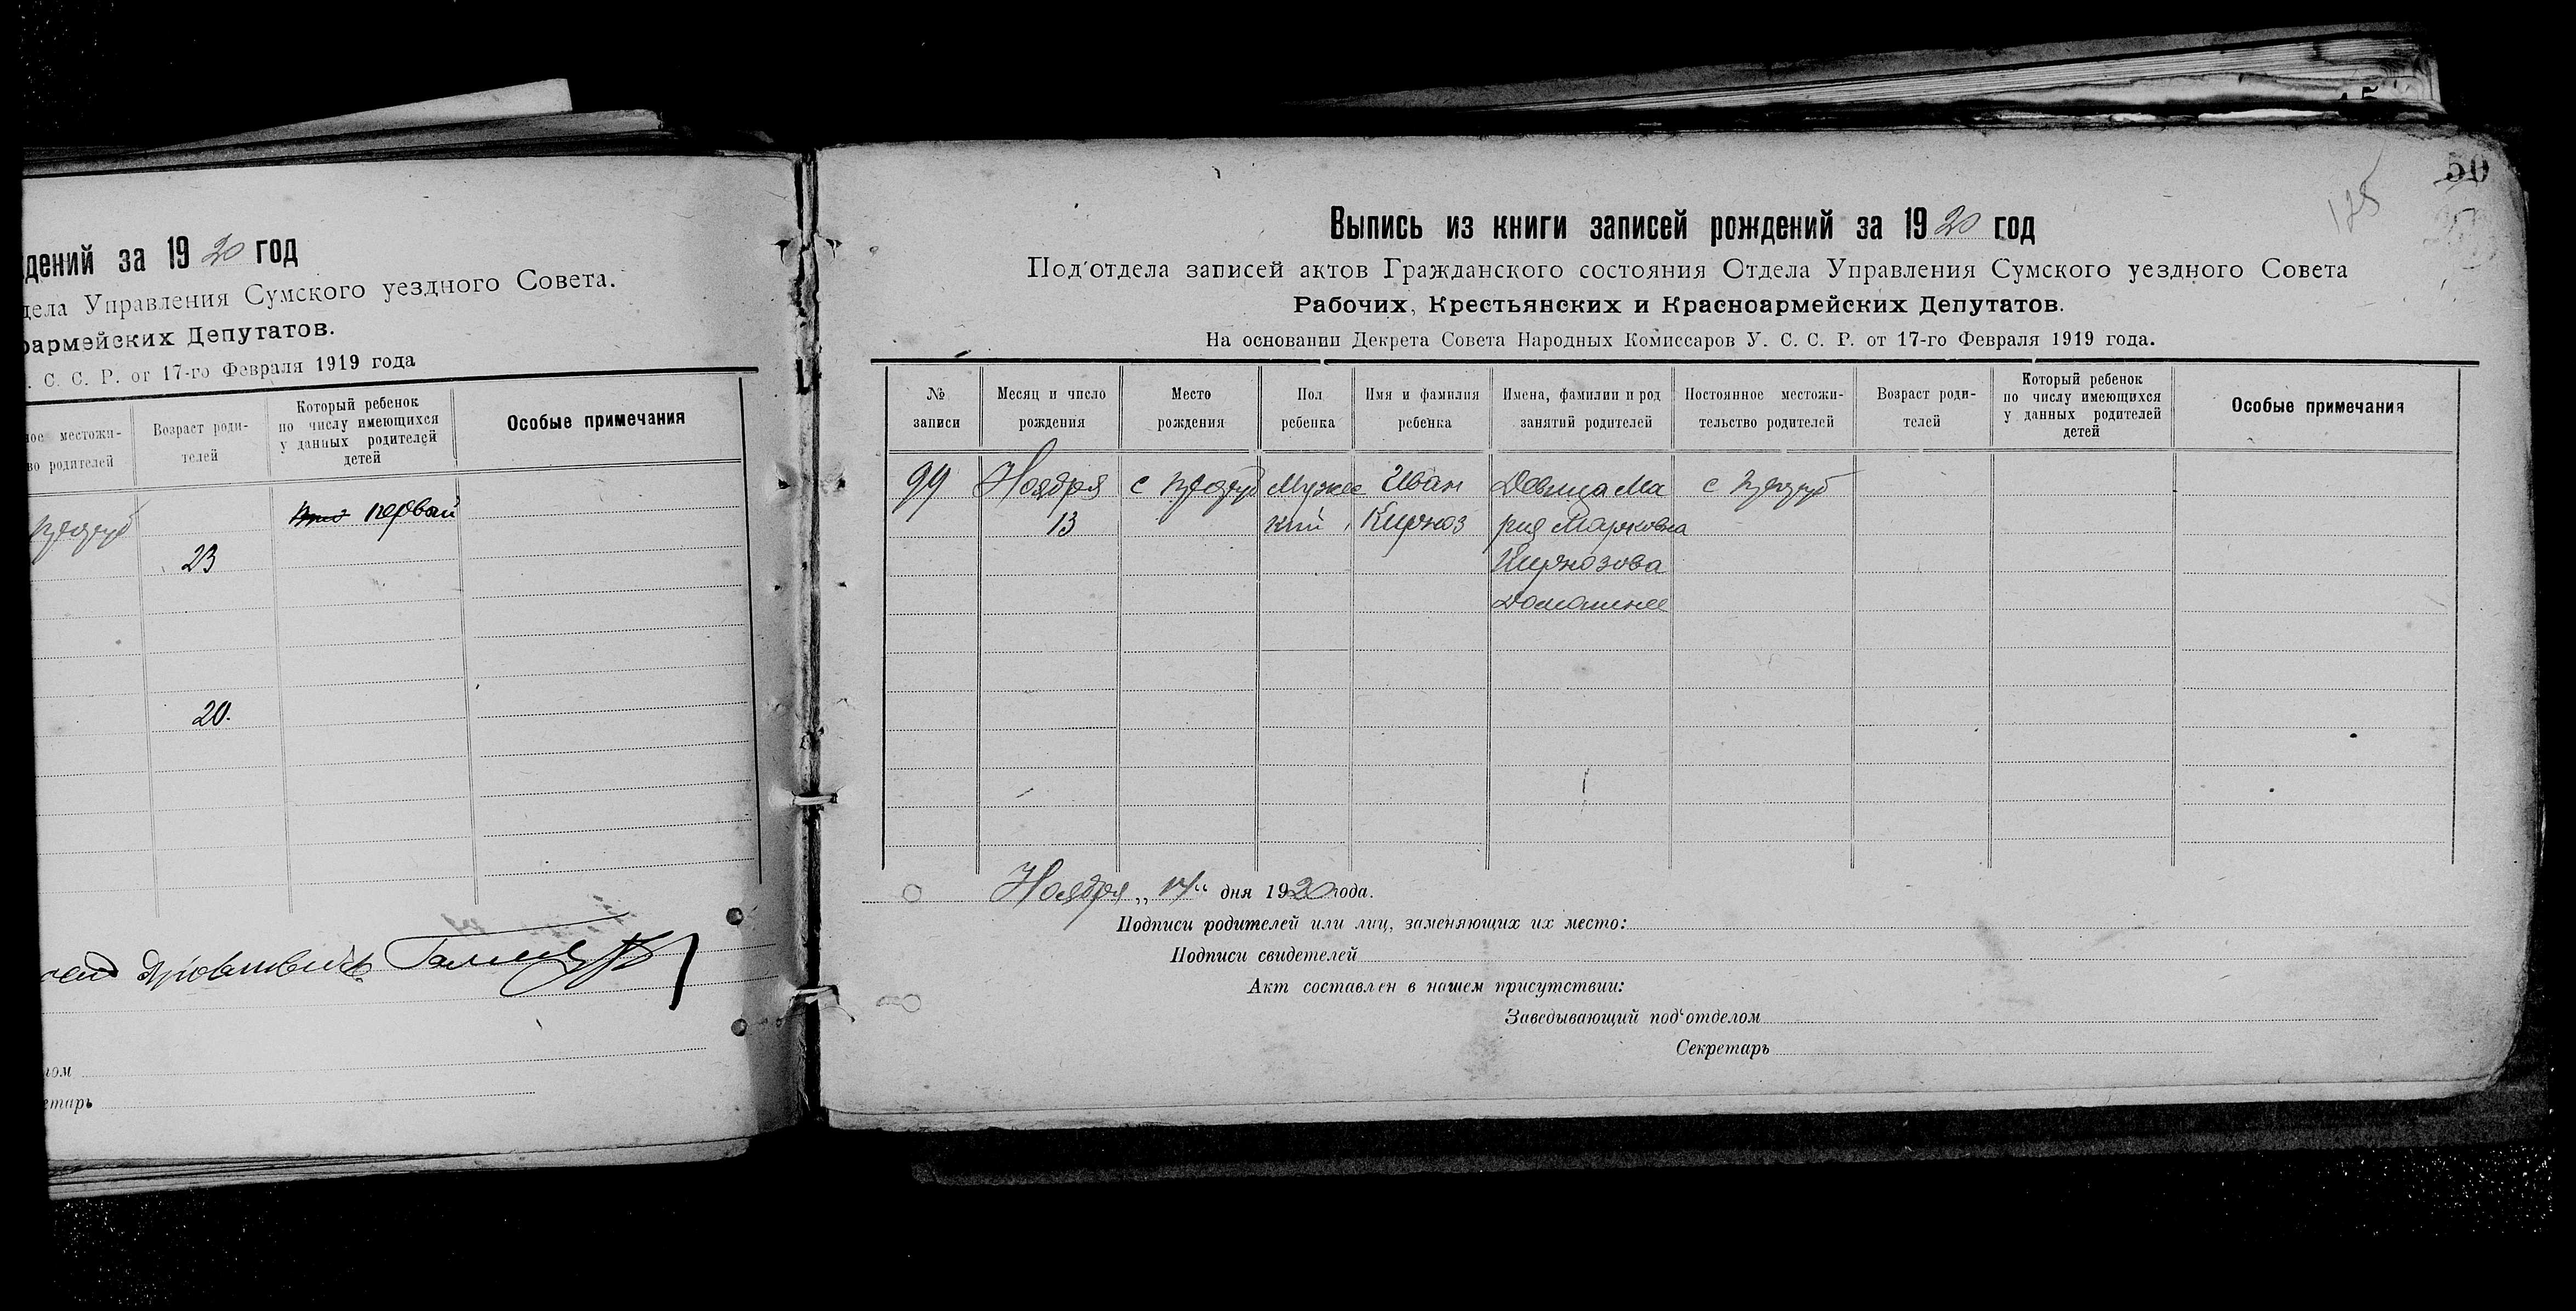 дений за 1920 год
дела Управления Сумского уездного Совета.
оармейских Депутатов.
. С. С. Р. от 17-го Февраля 1919 года
ное местожи-
во родителей
Возраст роди-
телей
Который ребенок
по числу имеющихся
у данных родителей
детей
Особые примечания
первый
23
20.
 том
етарь
50
125
Выпись из книги записей рождений за 1920 год
Под'отдела записей актов Гражданского состояния Отдела Управления Сумского уездного Совета
Рабочих, Крестьянских и Красноармейских Депутатов.
На основании Декрета Совета Народных Комиссаров У. С. С. Р. от 17-го Февраля 1919 года.
№
записи
Месяц и число
рождения
Место
рождения
Пол
ребенка
Имя и фамилия
ребенка
Имена, фамилии и род
занятий родителей
Постоянное местожи-
тельство родителей
Возраст роди-
телей
Который ребенок
по числу имеющихся
у данных родителей
детей
Особые примечания
99
Ноября
13
с
Мужс
кий
Иван
Кирноз
Девица Ма
рия Марковна
Кирнозова
Домашнее
с
Ноября „14“ дня 1920 года.
Подписи родителей или лиц, заменяющих их место:
Подписи свидетелей
Акт составлен в нашем присутствии:
Заведывающий под‘отделом
Секретарь